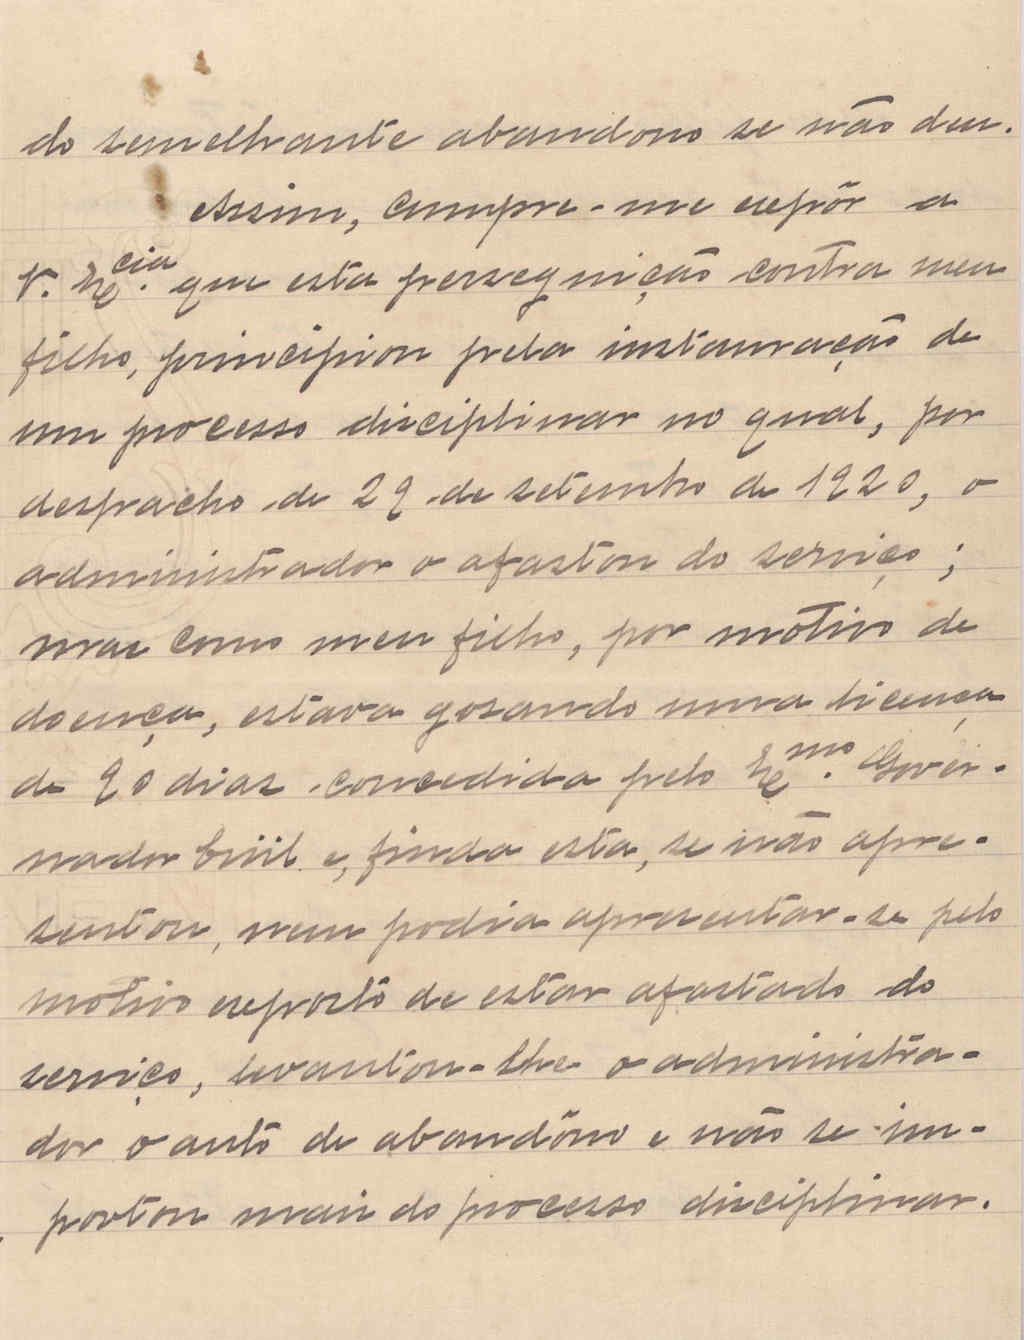 do semelhante abandono se não deu.
Assim, cumpre-me expôr a
V. Ex.cia que esta perseguição contra meu
filho, principiou pela instauração de
um processo disciplinar no qual, por
despacho de 29 de setembro de 1920, o
administrador o afastou do serviço;
mas como meu filho, por motivo de
doença, estava gosando uma licença
de 90 dias concedida pelo Ex.mo Gover-
nador Civil e, finda esta, se não apre-
sentou, nem podia apresentar-se pelo
motivo exposto de estar afastado do
serviço, levantou-lhe o administra-
dor o auto de abandôno e não se im-
portou mais do processo disciplinar.